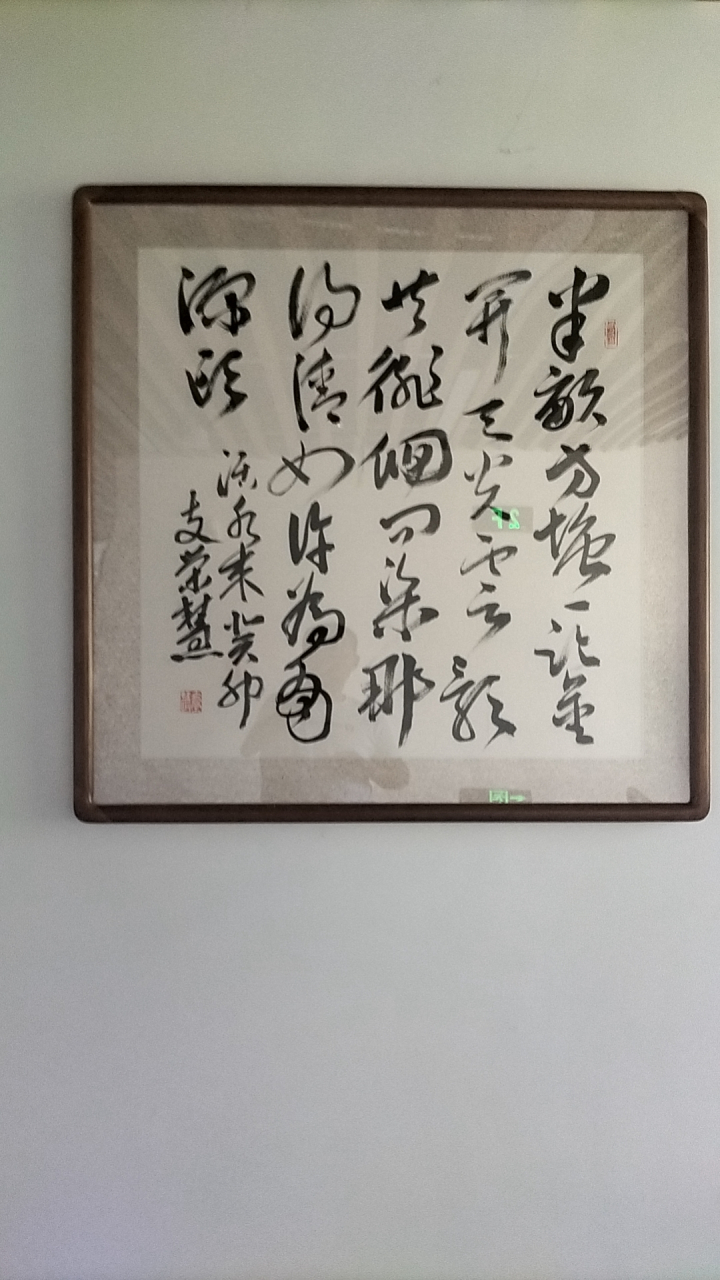 半畝方塘一鑒
開天光雲影
共徘徊問渠那
得清如許為有
源頭
活水来癸卯
支荣慧